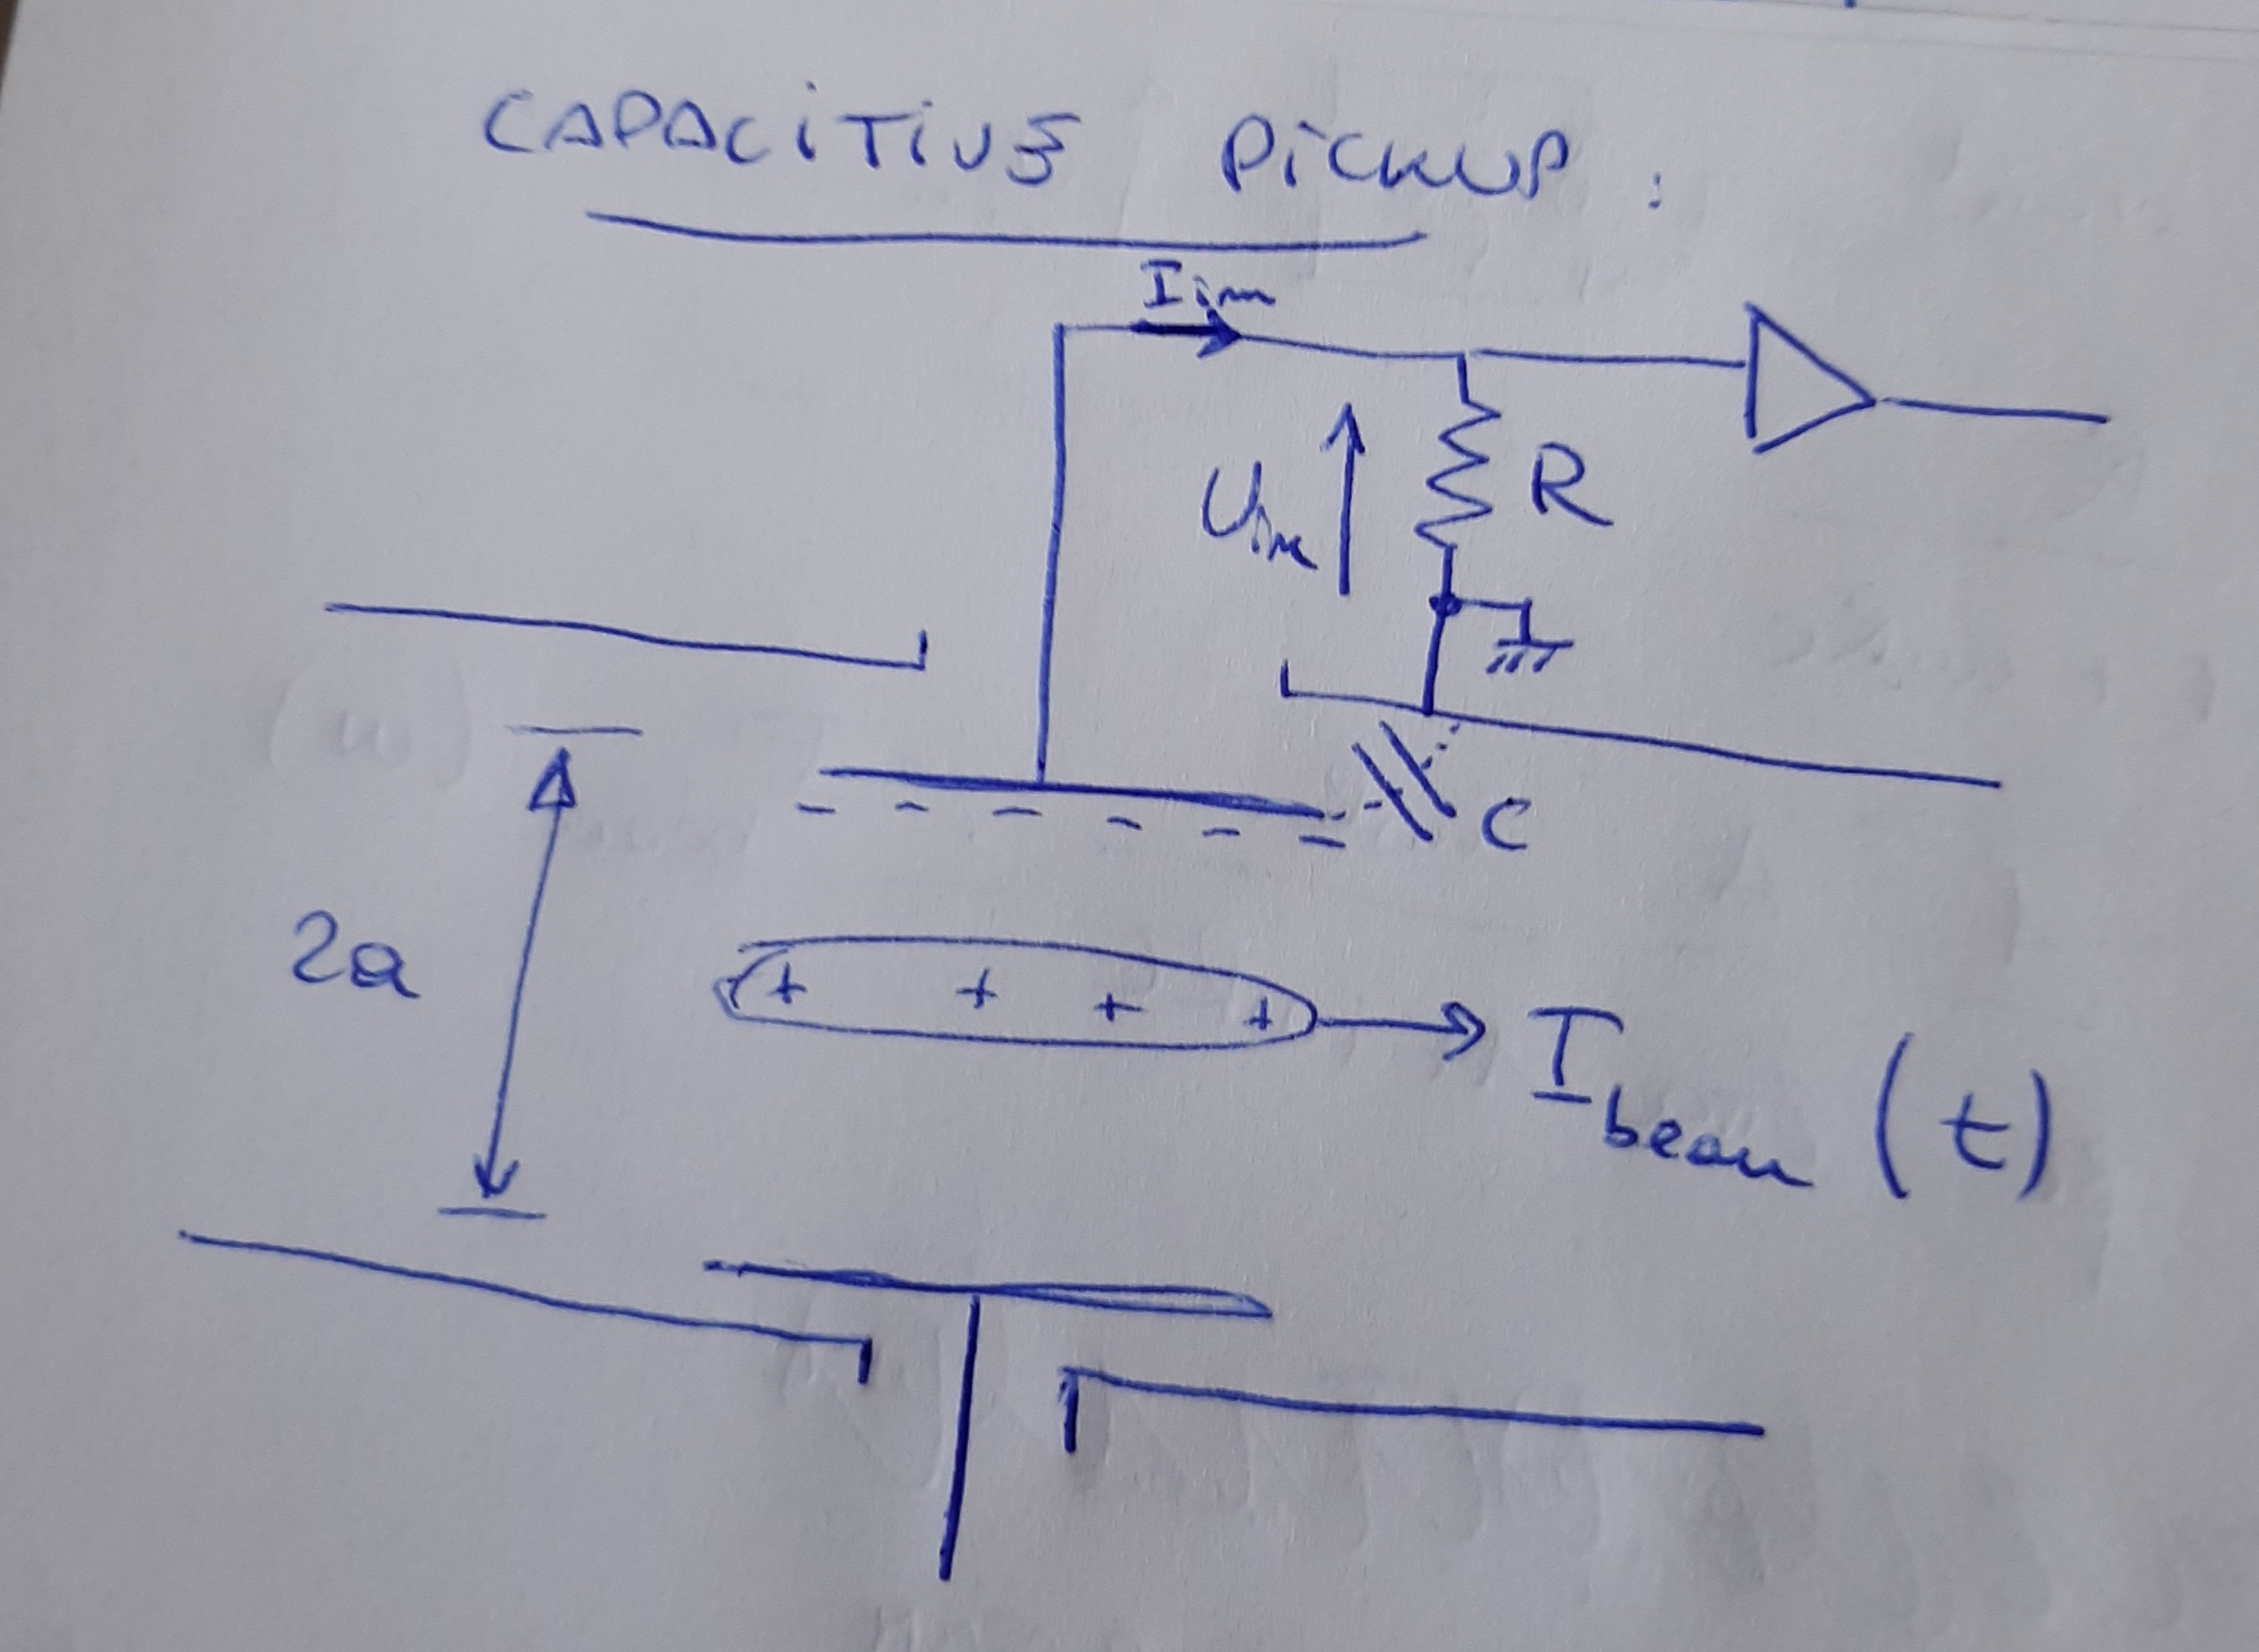 CAPACiTiVE PiCKUP :
I im
U im
R
C
2a
- - - - - - -
+ + + +
I beam (t)